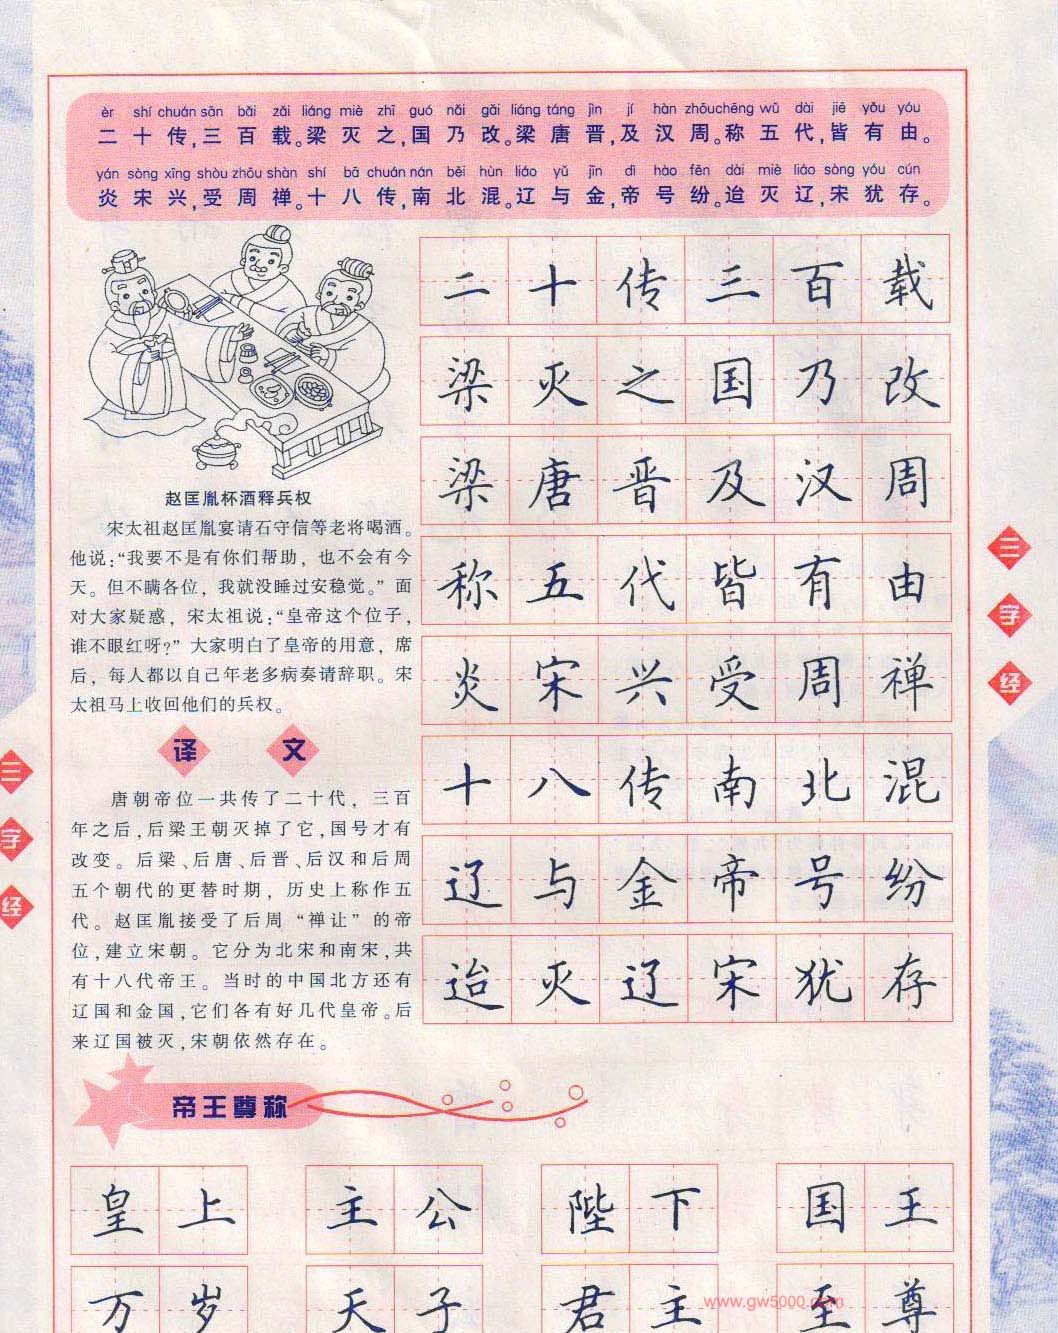 èr shí chuán sān bǎi zǎi liáng miè zhī guó nǎi gǎi liáng táng jìn jí hàn zhōu chēng wǔ dài jiē yǒu yóu
二十传,三百载。梁灭之,国乃改。梁唐晋,及汉周。称五代,皆有由。
yán sòng xīng shòu zhōu shàn shí bā chuán nán běi hùn liáo yǔ jīn dì hào fēn dài miè liáo sòng yóu cún
炎宋兴,受周禅。十八传,南北混。辽与金,帝号纷。迨灭辽,宋犹存。
赵匡胤杯酒释兵权
宋太祖赵匡胤宴请石守信等老将喝酒。
他说:“我要不是有你们帮助，也不会有今
天。但不瞒各位，我就没睡过安稳觉。”面
对大家疑惑，宋太祖说:“皇帝这个位子，
谁不眼红呀?”大家明白了皇帝的用意，席
后，每人都以自己年老多病奏请辞职。宋
太祖马上收回他们的兵权。
译文
唐朝帝位一共传了二十代，三百
年之后,后梁王朝灭掉了它,国号才有
改变。后梁、后唐、后晋、后汉和后周
五个朝代的更替时期，历史上称作五
代。赵匡胤接受了后周“禅让”的帝
位,建立宋朝。它分为北宋和南宋,共
有十八代帝王。当时的中国北方还有
辽国和金国,它们各有好几代皇帝。后
来辽国被灭,宋朝依然存在。
二十传三百载
梁灭之国乃改
梁唐晋及汉周
称五代皆有由
炎宋兴受周禅
十八传南北混
辽与金帝号纷
迨灭辽宋犹存
三字经
三字经
帝王尊称
皇上 主公 陛下 国王
万岁 天子 君主 至尊
www.gw5000.com